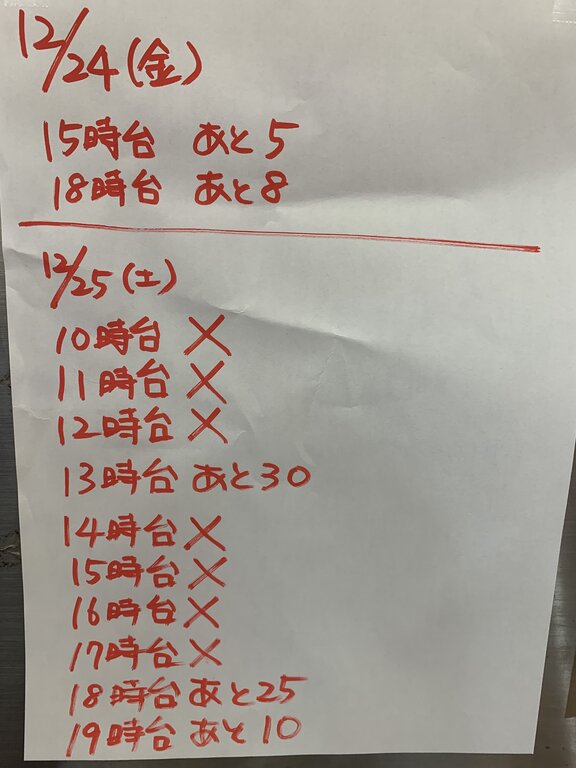 12/24(金)
15時台 あと5
18時台 あと8
12/25(土)
10時台 ×
11時台 ×
12時台 ×
13時台 あと30
14時台 ×
15時台 ×
16時台 ×
17時台 ×
18時台 あと25
19時台 あと10